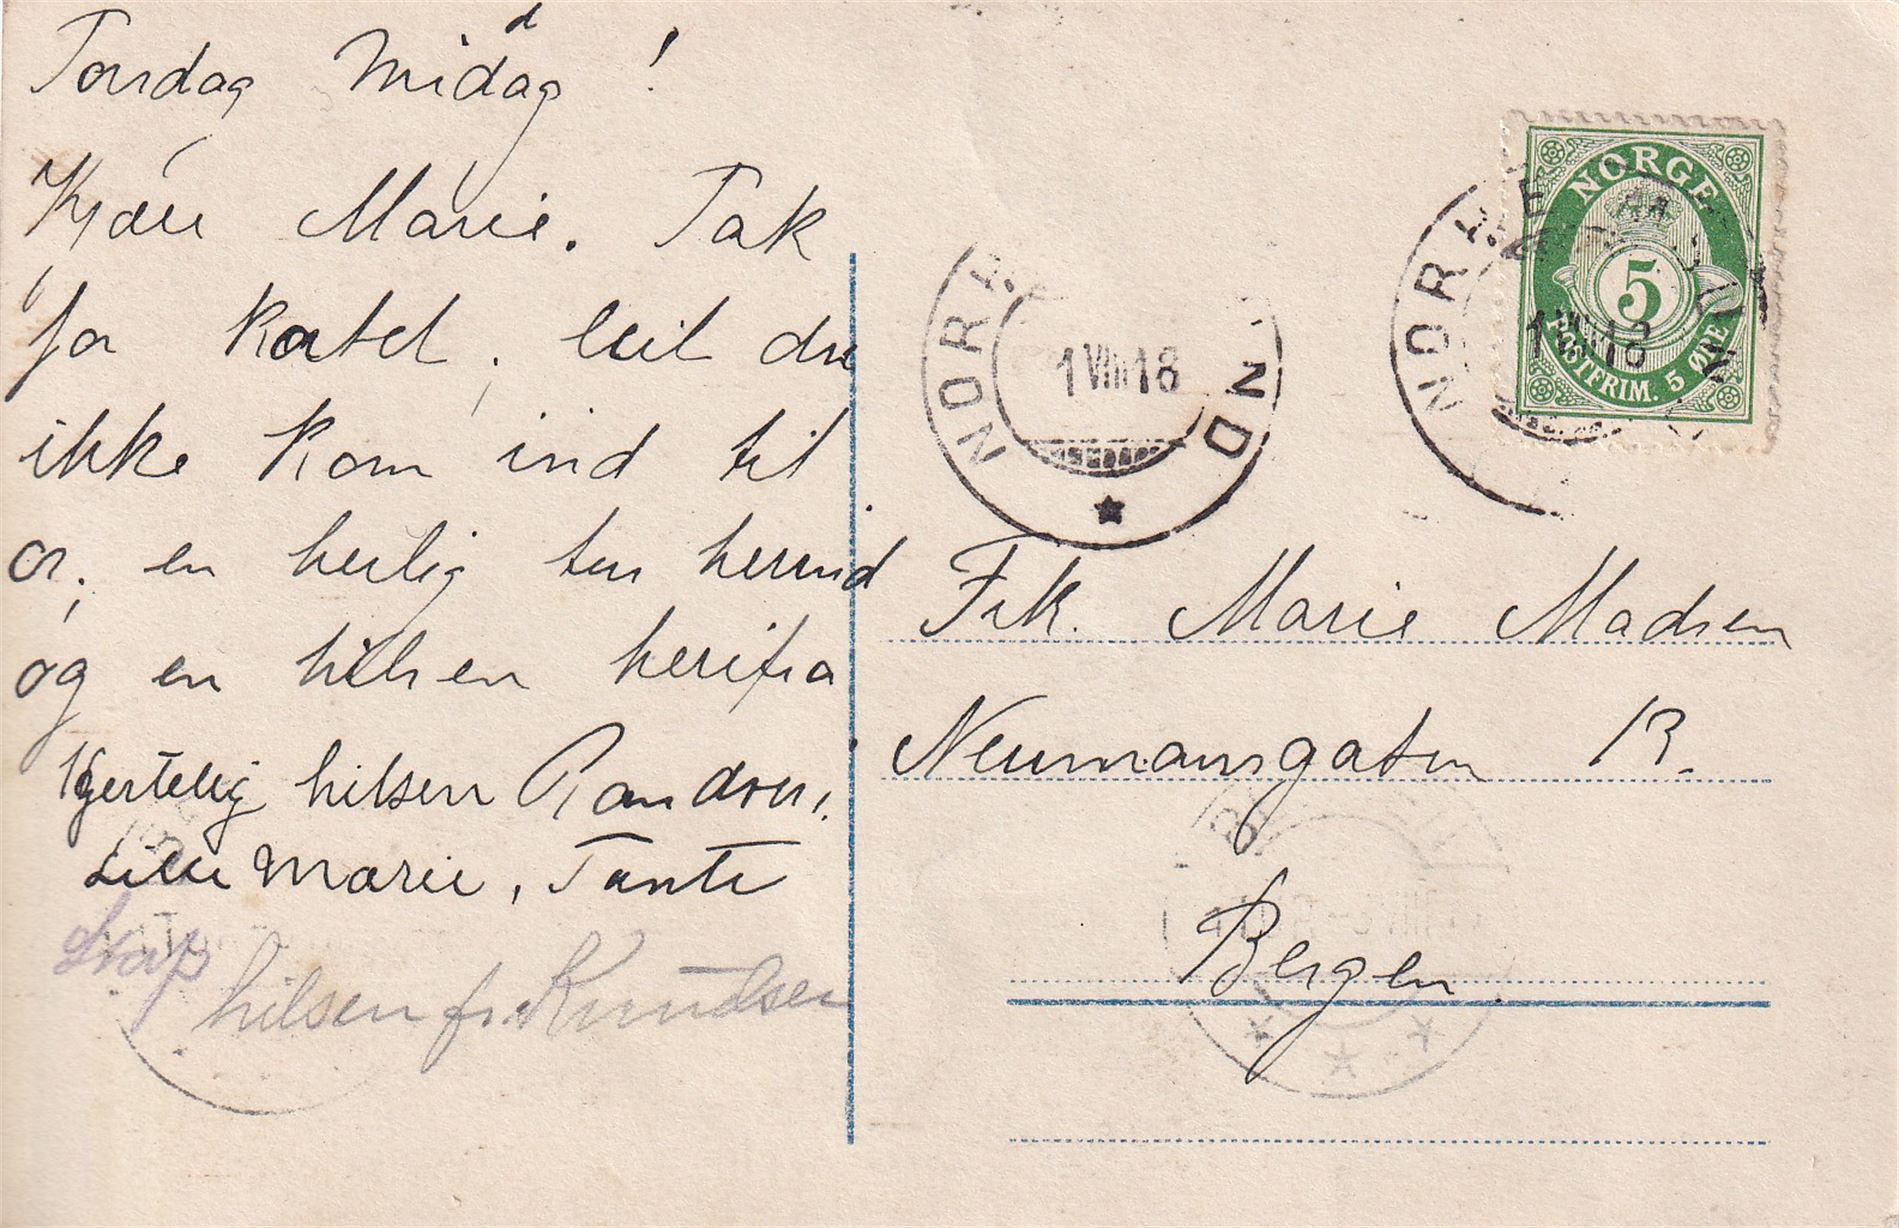 Torsdag Middag!
Kjære Marie. Tak
for kortet, leit du
ikke kom ind til
os, en herlig tur herind
og en hilsen herifra
Hjertelig hilsen
Lille Marie, Tante
hilsen fr. Knudsen
NORGE
5
POSTFRIM. 5 ØRE
NORH
1 VIII 18
ND
NORH
1 VIII 18
Frk. Marie Madsen
Neumansgaten 13.
Bergen